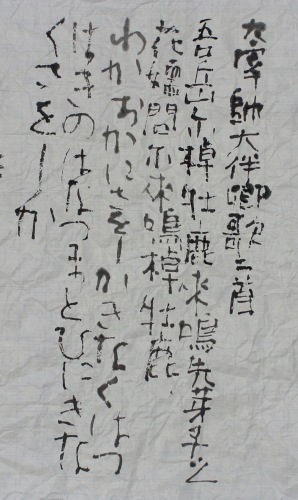 大宰帥大伴卿歌二首
吾岳尓棹牡鹿來鳴先芽子之
花嬬問尓來鳴棹牡鹿
わかおかにさをしかきなくはつ
はきのはなつまとひにきな
くさをしか